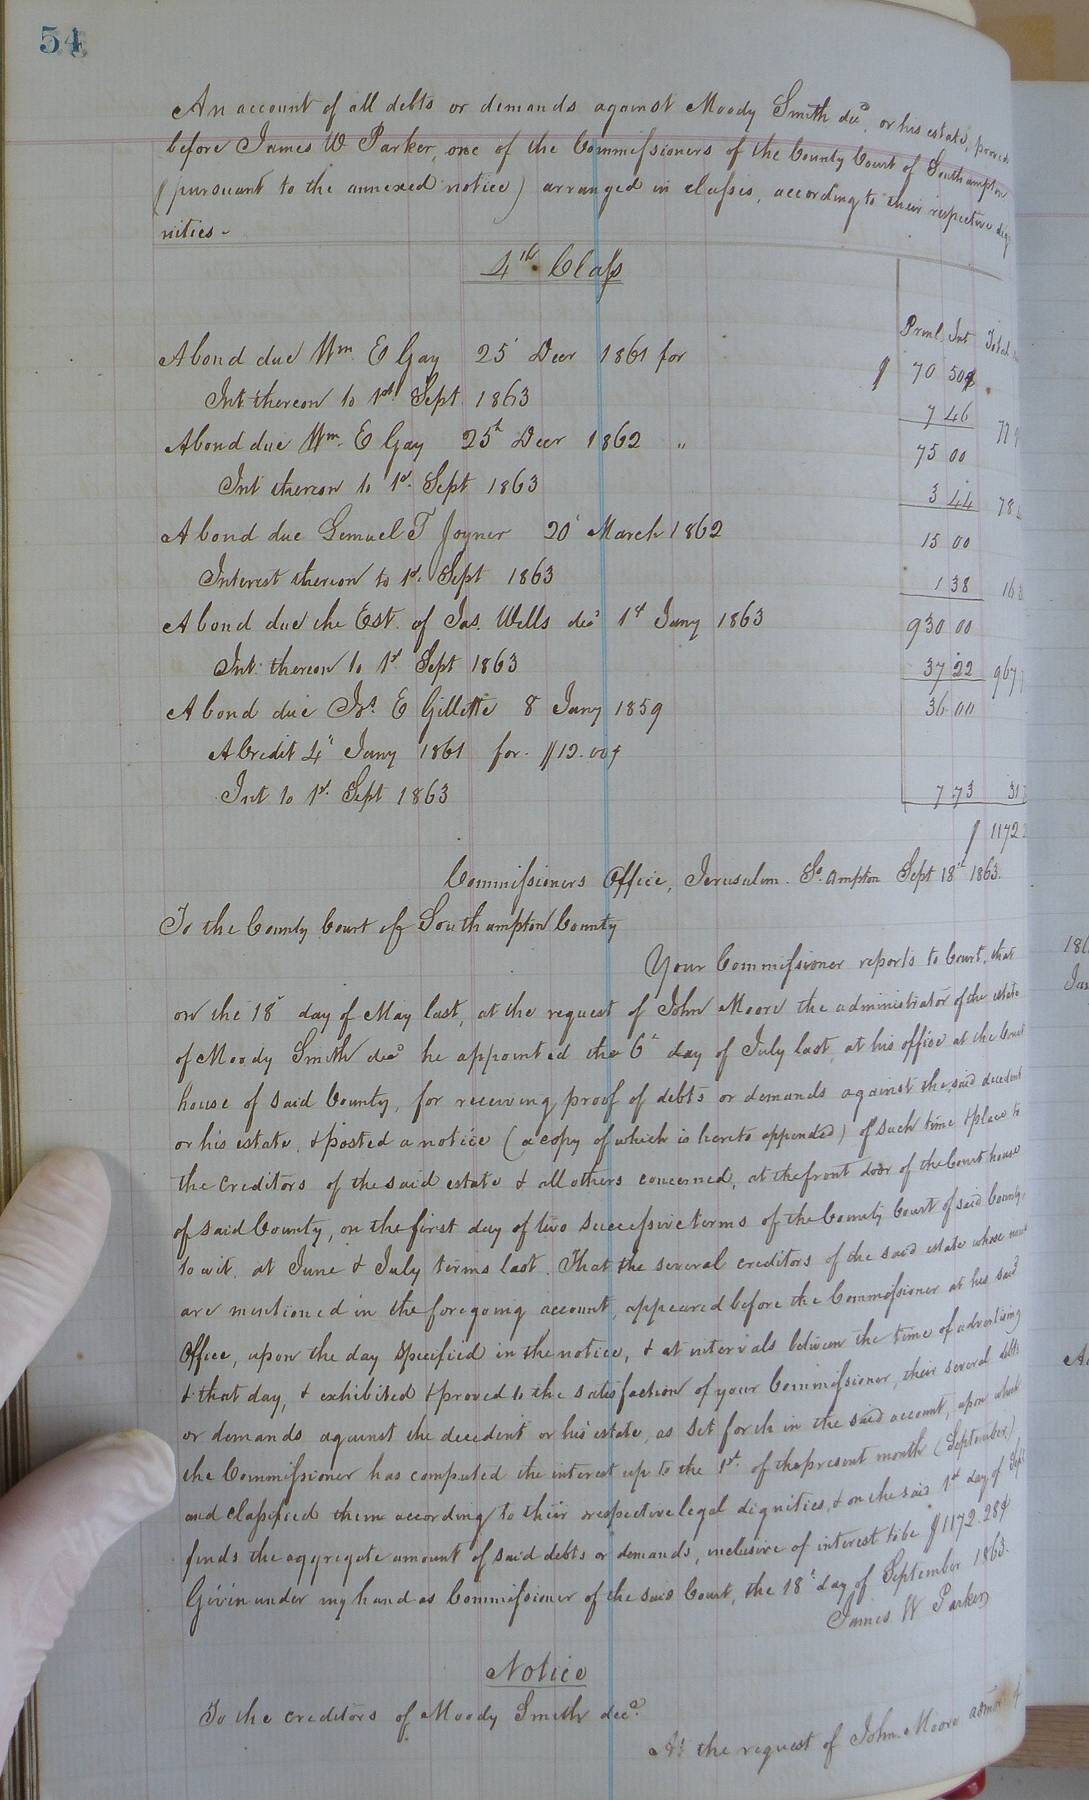 54
An account of all debts or demands against Moody Smith decd, or his estate, proved
before James W Parker, one of the Commissioners of the County Court of Southampton
(pursuant to the annexed notice) arranged in classes, according to their respective dig
nities.
4th Class
Prnl Int Total
A bond due Wm E Gay 25' Decr 1861 for $ 70 50¢
Int. thereon to 1st Sept 1863 7 46 77 9
A bond due Wm. E Gay 25th Decr 1862 " 75 00
Int thereon to 1st. Sept 1863 3 44 78
A bond due Lemuel T Joyner 20' March 1862 15 00
Interest thereon to 1st. Sept 1863 1 38 16
A bond due the Est. of Jas. Wells decd 1st Jany 1863 930 00
Int. thereon to 1st Sept 1863 37 22 967
A bond due Jos. E Gillette 8 Jany 1859 36 00
A Credit 4" Jany 1861 for $12.00¢
Int to 1st. Sept 1863 7 73 31
$ 1172 2
Commissioners Office, Jerusalem. So. ampton Sept 18th 1863.
To the County Court of Southampton County
Your Commissioner reports to Court, that
on the 18' day of May last, at the request of John Moore the administrator of the estate
of Moody Smith decd he appointed the 6th day of July last, at his office at the Court
house of said County, for receiving proof of debts or demands against the said decedent
or his estate, & posted a notice (a copy of which is hereto appended) of such time & place to
the creditors of the said estate & all others concerned, at the front door of the Court house
of said County, on the first day of two successive terms of the County Court of said County,
to wit, at June & July terms last. That the several creditors of the said estate whose names
are mentioned in the foregoing account, appeared before the Commissioner at his said
Office, upon the day specified in the notice, & at intervals between the time of advertising
& that day, & exhibited & proved to the satisfaction of your Commissioner, their several debts
or demands against the decedent or his estate, as set forth in the said account, upon which
the Commissioner has computed the interest up to the 1st. of the present month (September)
and classified them according to their respective legal dignities, & on the said 1st day of Sept
finds the aggregate amount of said debts or demands, inclusive of interest to be $1172.28¢
Given under my hand as Commissioner of the said Court, the 18' day of September 1863.
James W Parker
Notice
To the creditors of Moody Smith decd.
At the request of John Moore admr of
186
Jan